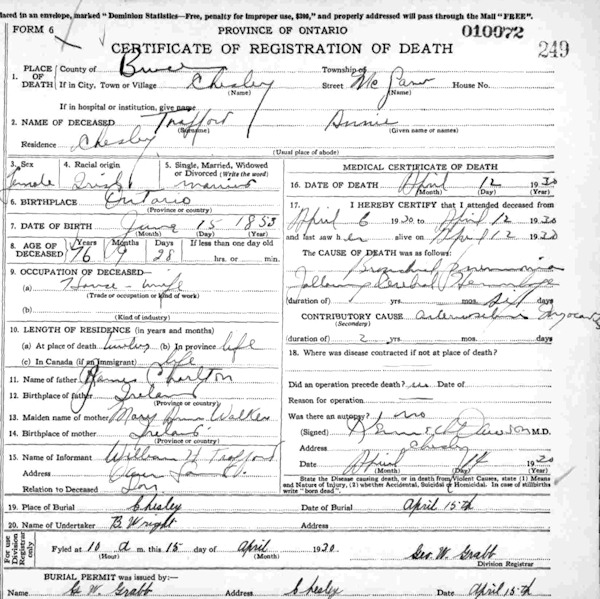 laced in an envelope, marked "Dominion Statistics—Free, penalty for improper use, $300," and properly addressed will pass through the Mail "FREE".
FORM 6
PROVINCE OF ONTARIO
010072
CERTIFICATE OF REGISTRATION OF DEATH
249
1. PLACE OF DEATH County of Bruce Township of
If in City, Town or Village Chesley (Name) Street House No.
If in hospital or institution, give name
2. NAME OF DECEASED Trafford (Surname) Annie (Given name or names)
Residence Chesley (Usual place of abode)
3. Sex Female 4. Racial origin Irish 5. Single, Married, Widowed or Divorced (Write the word) married
6. BIRTHPLACE Ontario (Province or country)
7. DATE OF BIRTH June 15 1853 (Month) (Day) (Year)
8. AGE OF DECEASED Years 76 Months 9 Days 28 If less than one day old hrs. or min.
9. OCCUPATION OF DECEASED—
(a) House-wife (Trade or occupation or kind of work)
(b) (Kind of industry)
10. LENGTH OF RESIDENCE (in years and months)
(a) At place of death (b) In province life
(c) In Canada (if an immigrant) life
11. Name of father James Charlton
12. Birthplace of father Ireland (Province or country)
13. Maiden name of mother Mary Ann Walker
14. Birthplace of mother Ireland (Province or country)
15. Name of Informant William H Trafford
Address Owen Sound O.
Relation to Deceased Son
MEDICAL CERTIFICATE OF DEATH
16. DATE OF DEATH April 12 1930 (Month) (Day) (Year)
17. I HEREBY CERTIFY that I attended deceased from
April 6 1930 to April 12 1930
and last saw her alive on April 12 1930
The CAUSE OF DEATH was as follows:
Bronchial Pneumonia
following Cerebral Hemorrhage
(duration of) yrs. mos. six days
CONTRIBUTORY CAUSE (Secondary)
(duration of) 2 yrs. mos. days
18. Where was disease contracted if not at place of death?
Did an operation precede death? no Date of
Reason for operation
Was there an autopsy? no
(Signed) M.D.
Address Chesley
Date April 1930 (Month) (Day) (Year)
State the Disease causing death, or in death from Violent Causes, state (1) Means and Nature of Injury, (2) whether Accidental, Suicidal or Homicidal. In case of stillbirths write "born dead".
19. Place of Burial Chesley Date of Burial April 15th
20. Name of Undertaker B. Wright Address
For use Division Registrar only
Fyled at 10 a m. this 15 day of April 1930. Geo. W. Grabb
(Hour) (Month) Division Registrar
BURIAL PERMIT was issued by:—
Name G. W. Grabb Address Chesley Date April 15th